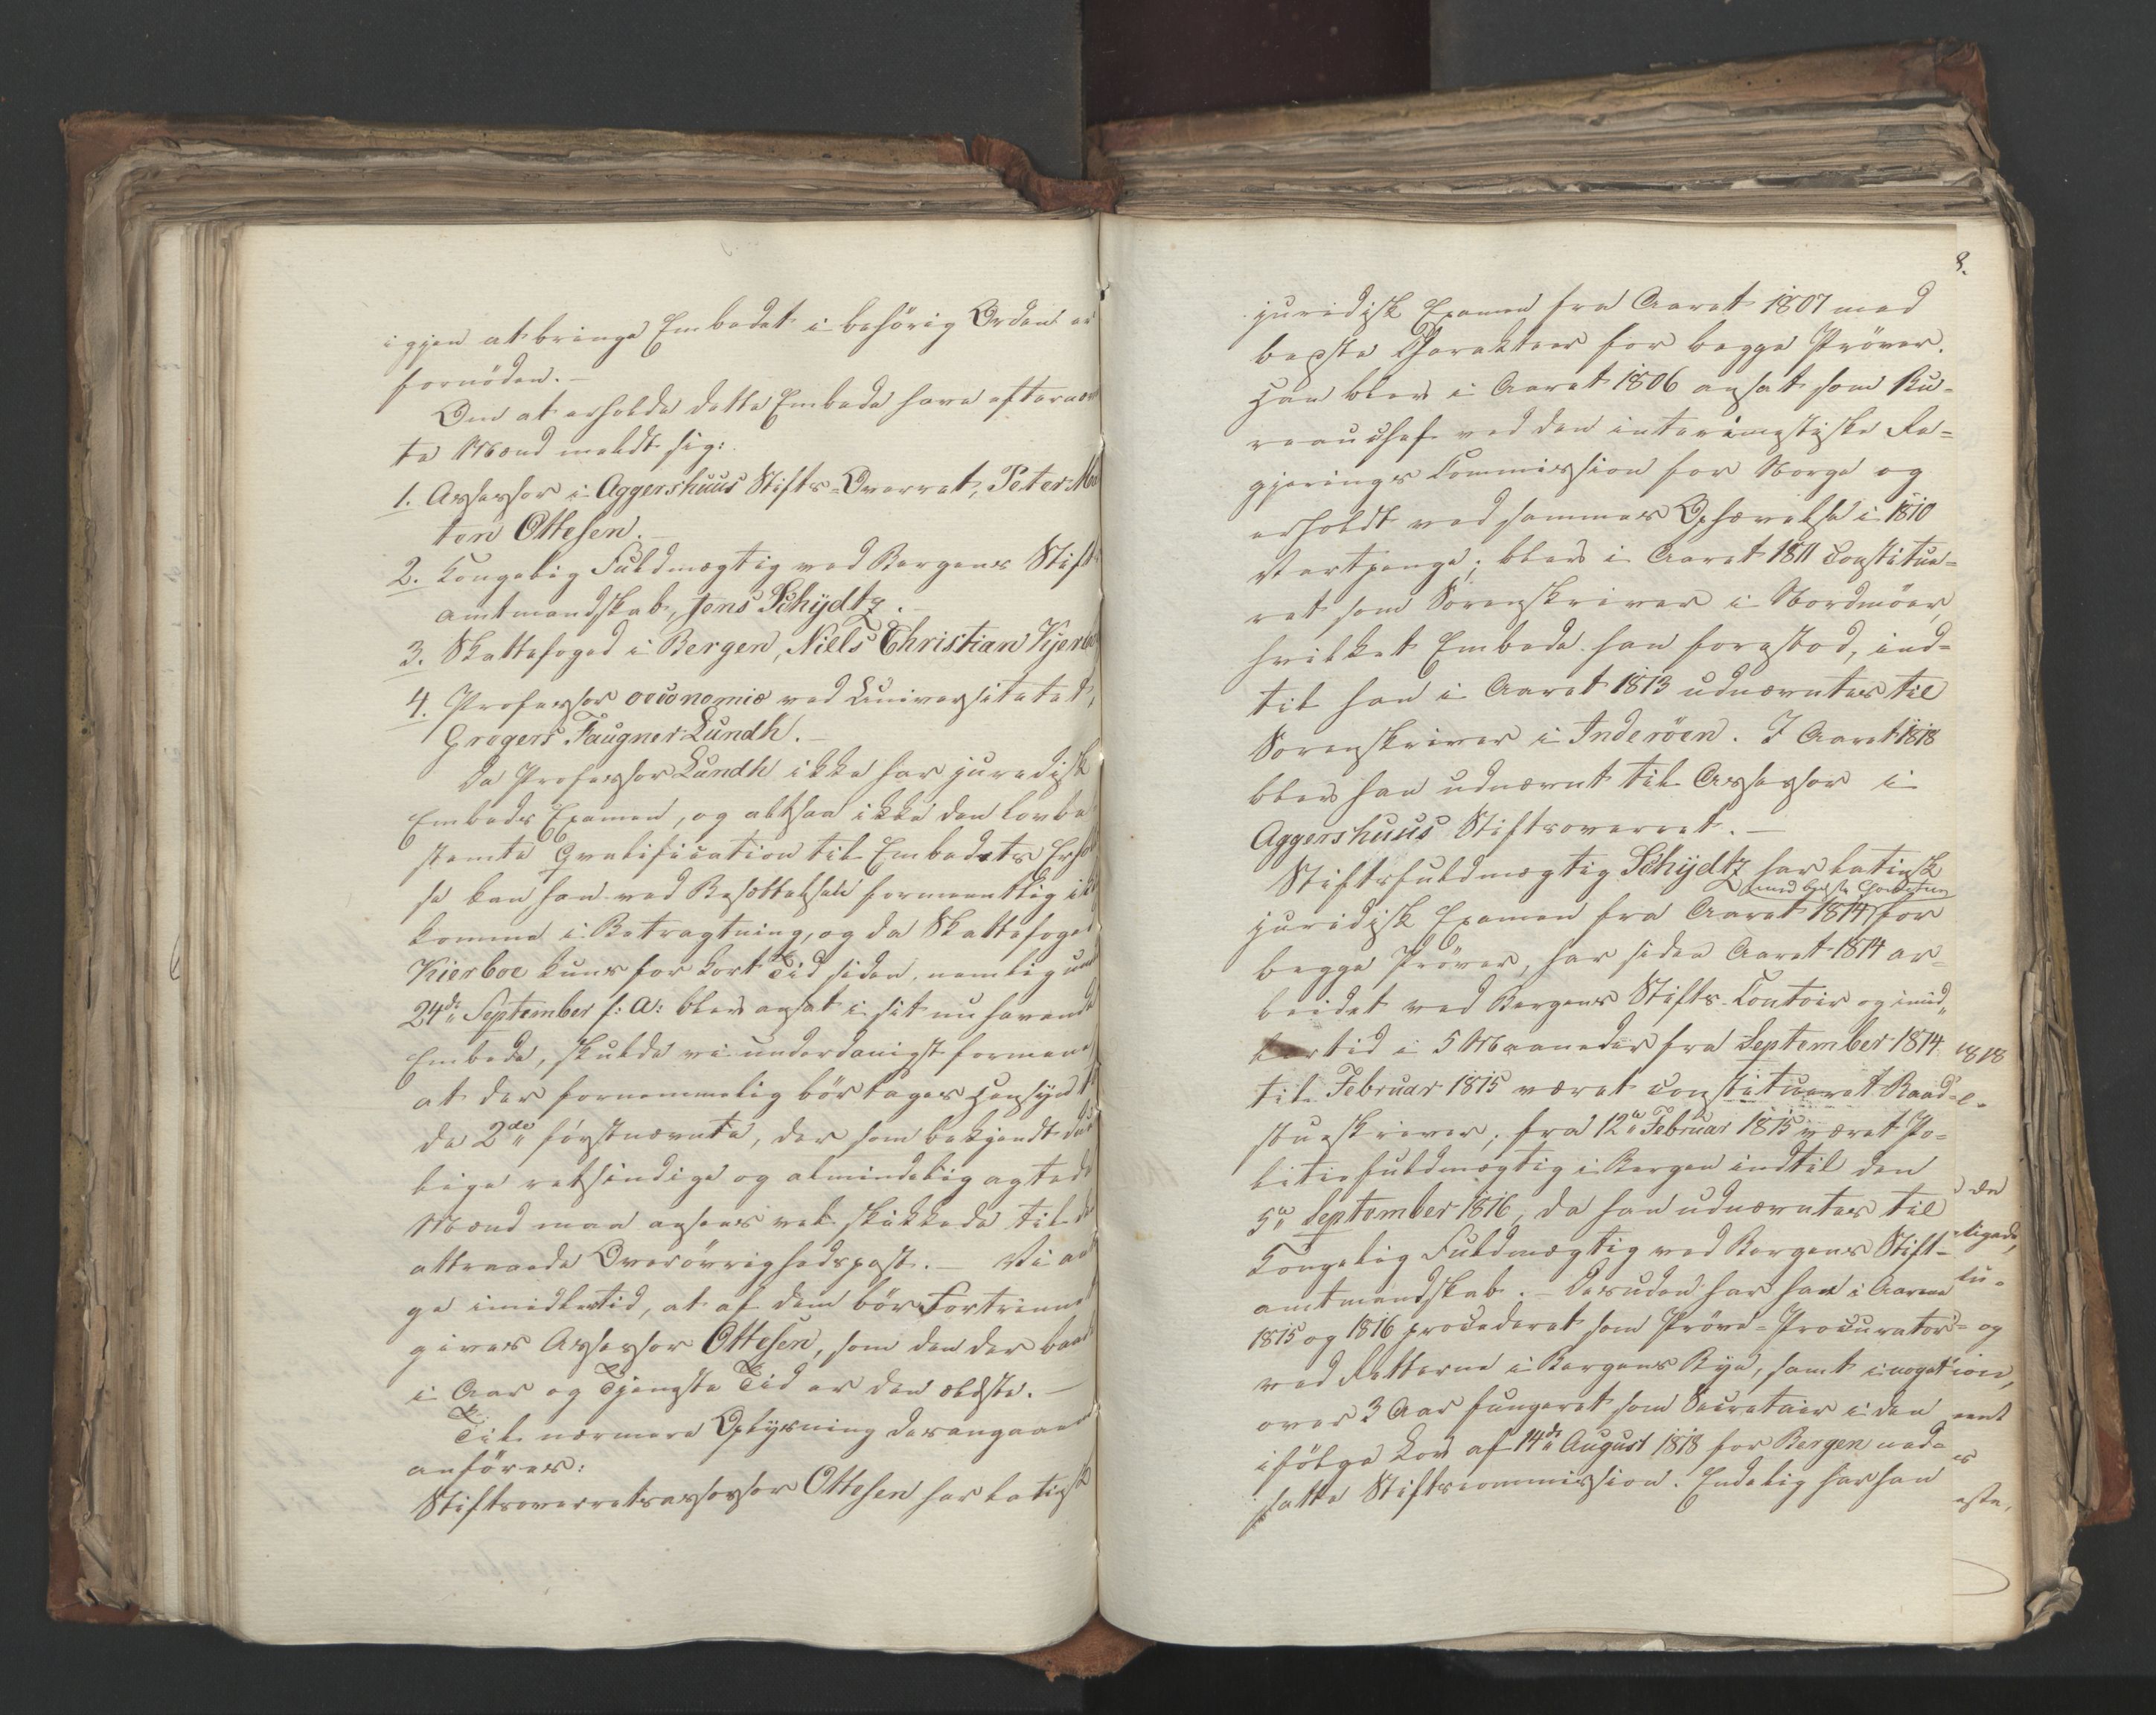 igjen at bringe Embedet i behörig Orden er
fornöden. –
Om at erholde dette Embede have efternævn
te Mænd meldt sig:
1. Assessor i Aggershuus Stifts-Overret, Peter Mo
ten Ottesen. –
2. Kongelig Fuldmægtig ved Bergens Stift
amtmandskab, Jens Schydtz. –
3. Skattefoged i Bergen, Niels Christian Kjerbo
4. Professor oeconomiæ ved Universitetet,
Gregers Faugner Lundh. –
Da Professor Lundh ikke har juridisk
Embeds Examen, og altsaa ikke den lovbe
stemte Qvalification til Embedets Erhol
se kan han ved Besættelsen formeentlig ik
komme i Betragtning, og da Skattefoged
Kierboe kuns for kort Tid siden, nemlig und
24de September f: A: blev ansat i sit nu havende
Embede, skulde vi underdanigst formene
at der fornemmelig bör tages Hensyn t
de 2de förstnævnte, der som bekjendt du
lige retsindige og almindelig agtede
Mænd maa ansees vel skikkede til de
attraaede Overövrighedspost. – Vi an
ge imidlertid, at af dem bör Fortrinnet
gives Assessor Ottesen, som den der baade
i Aar og Tjeneste Tid er den ældste. –
Til nærmere Oplysning desangaaen
anföres:
Stiftsoverretsassessor Ottesen har latinsk
8.
juridisk Examen fra Aaret 1807 med
bedste Charakteer for begge Pröver.
Han blev i Aaret 1806 ansat som Bu-
reauchef ved den interimistiske Re-
gjerings Commission for Norge og
erholdt ved sammes Ophævelse i 1810
Vartpenge; blev i Aaret 1811 Constitue-
ret som Sorenskriver i Nordmöer,
hvilket Embede han forestod, ind-
til han i Aaret 1813 udnævntes til
Sorenskriver i Inderöen. I Aaret 1818
blev han udnævnt til Assessor i
Aggershuus Stiftsoverret. –
Stiftsfuldmægtig Schydtz har latinsk
med bedste Charakteer
juridisk Examen fra Aaret 1814 for
begge Pröver, har siden Aaret 1814 ar-
beidet ved Bergens Stifts-Contoir og imid-
lertid i 5 Maaneder fra September 1814
til Februar 1815 været constitueret Raad-
stueskriver, fra 12te Februar 1815 været Po-
litiefuldmægtig i Bergen indtil den
5te September 1816, da han udnævntes til
Kongelig Fuldmægtig ved Bergens Stift-
amtmandskab. – Desuden har han i Aarene
1815 og 1816 procederet som Pröve-Procurator
ved Retterne i Bergens Bye, samt i noget
over 3 Aar fungeret som Secretair i den
ifölge Lov af 14de August 1818 for Bergen ned-
satte Stiftscommission. Endelig har han
1818